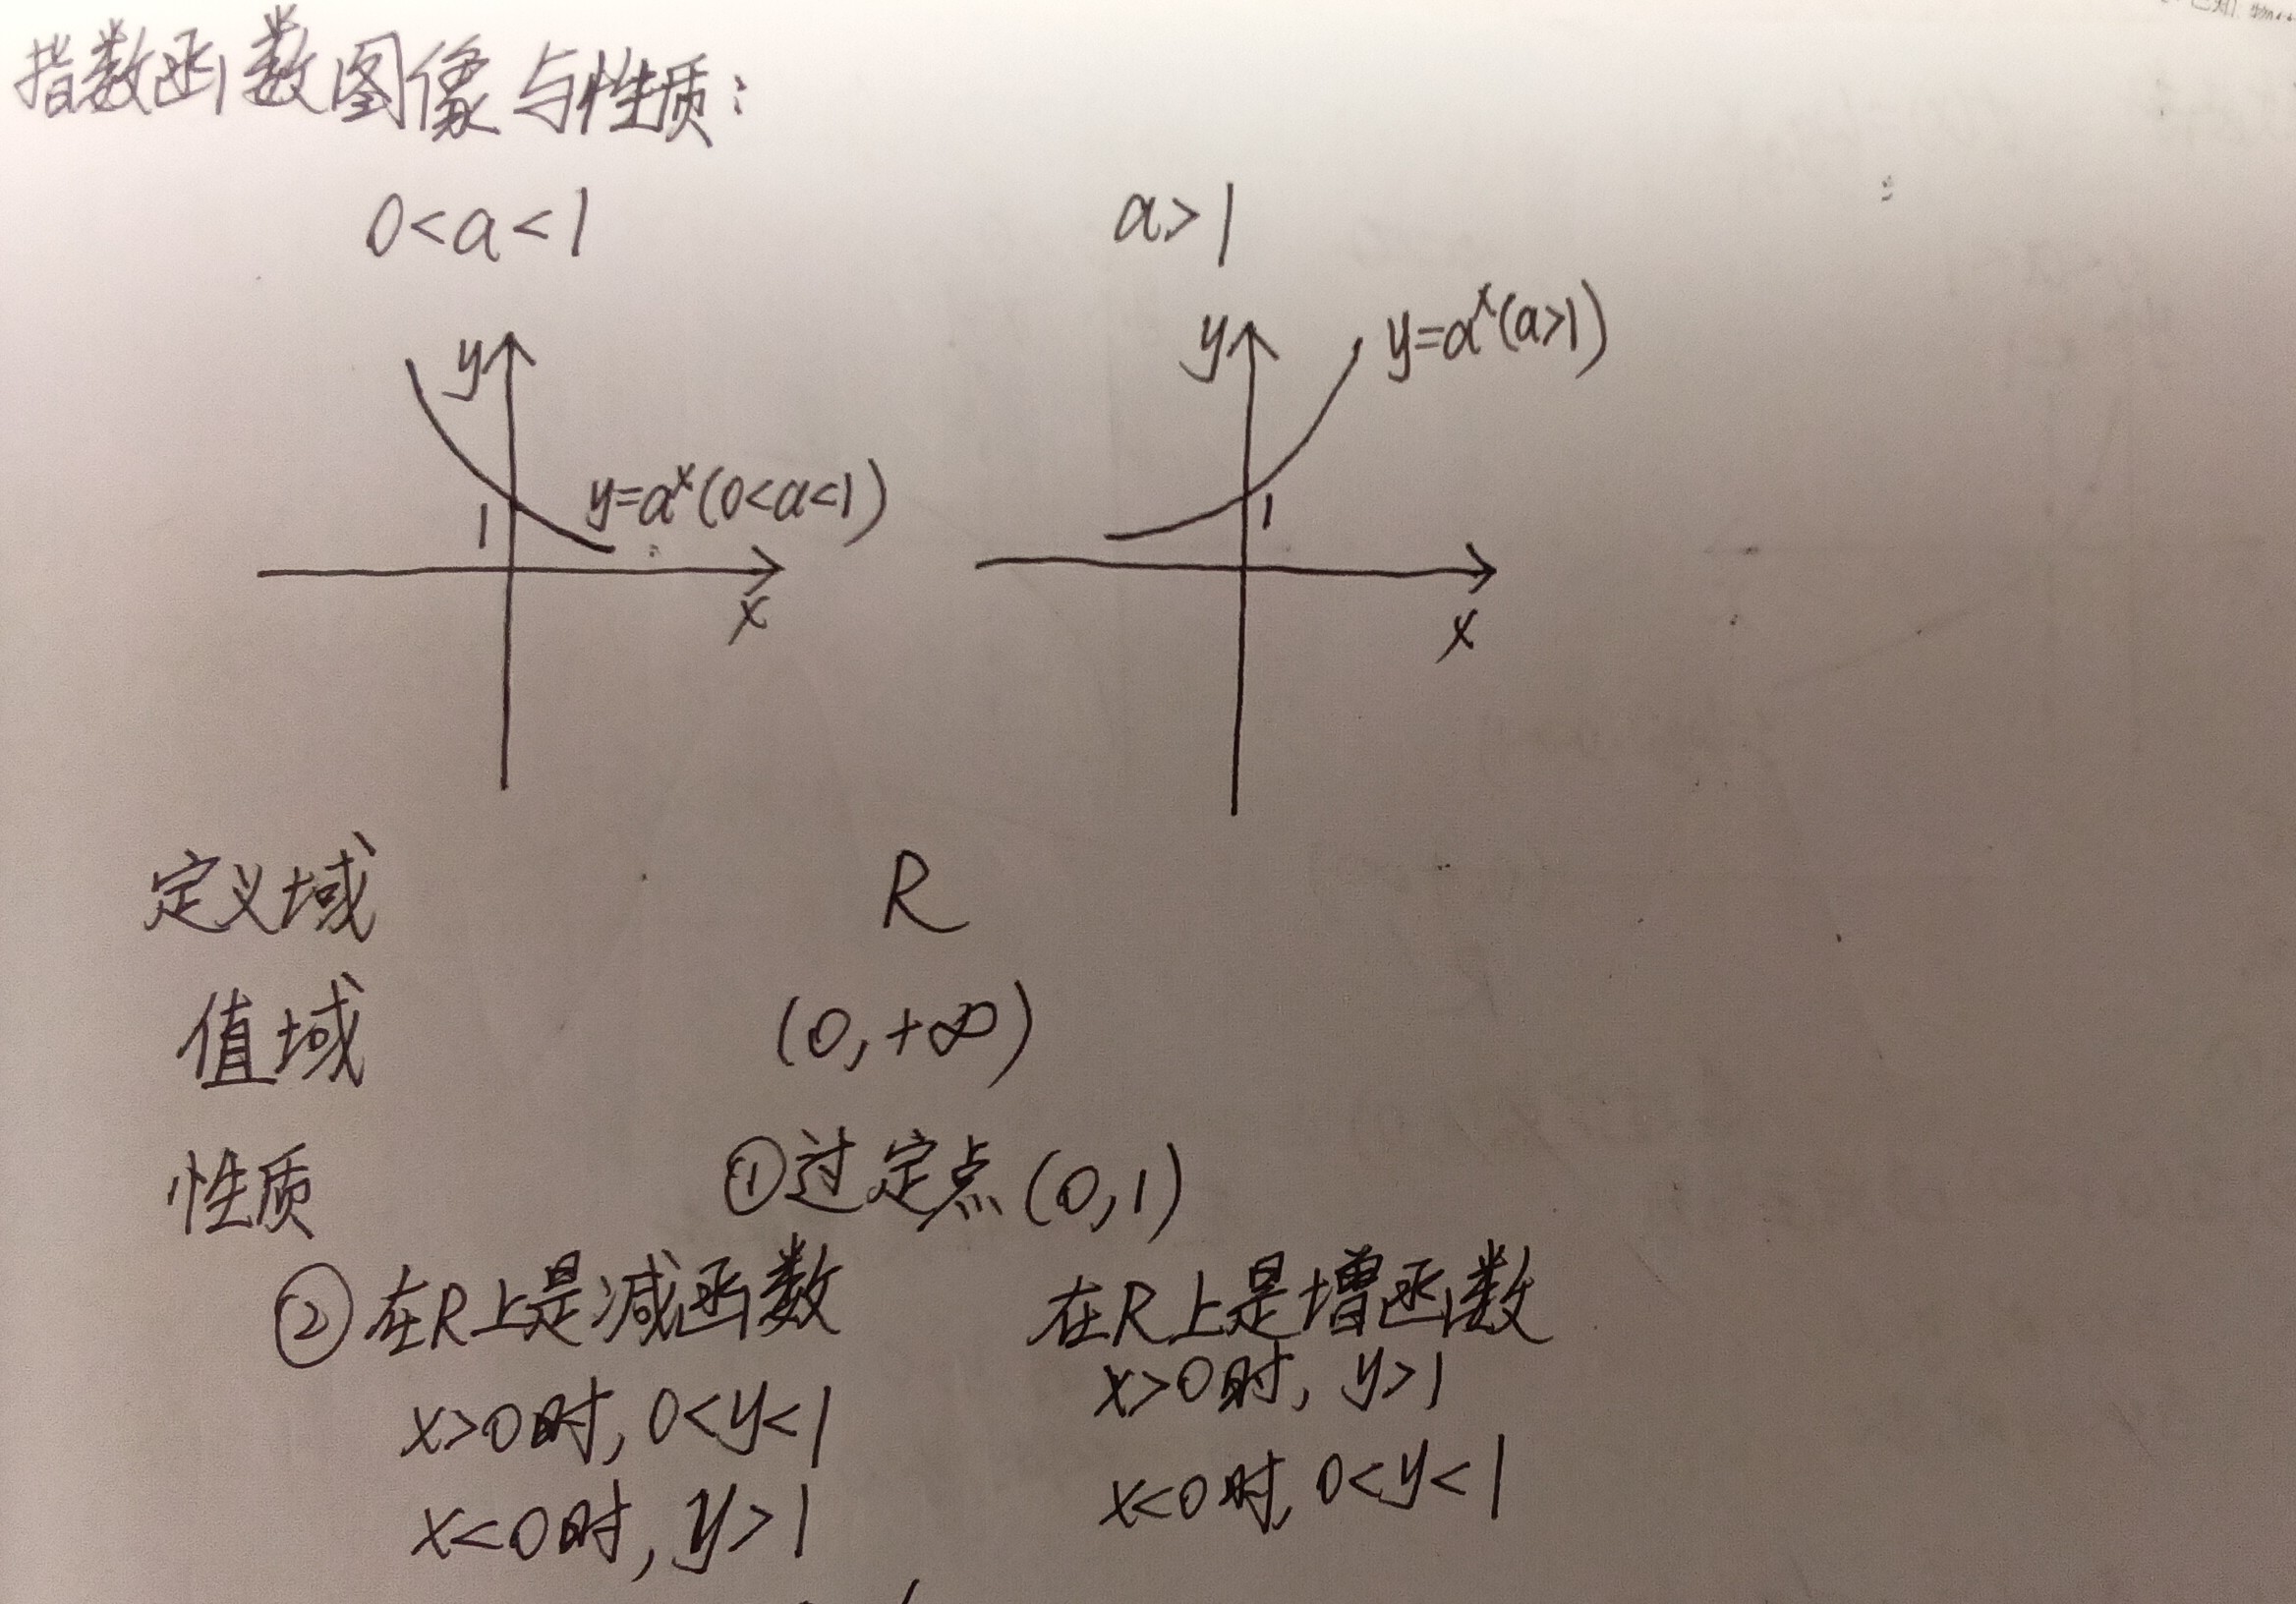 指数函数图像与性质:
0<a<1 a>1
y y y=aˣ(a>1)
1 y=aˣ(0<a<1) 1
x x
定义域 R
值域 (0,+∞)
性质 ①过定点(0,1)
②在R上是减函数 在R上是增函数
x>0时,0<y<1 x>0时,y>1
x<0时,y>1 x<0时,0<y<1